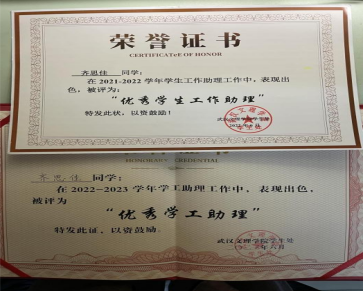 荣誉证书
CERTIFICATE OF HONOR
齐思佳 同学：
在2021-2022学年学生工作助理工作中，表现出
色，被评为：
“优秀学生工作助理”
特发此状，以资鼓励！
HONORARY CREDENTIAL
齐思佳 同学：
在2022-2023学年学工助理工作中，表现出色，
被评为
“优秀学工助理”
特发此证，以资鼓励。
武汉文理学院学生处